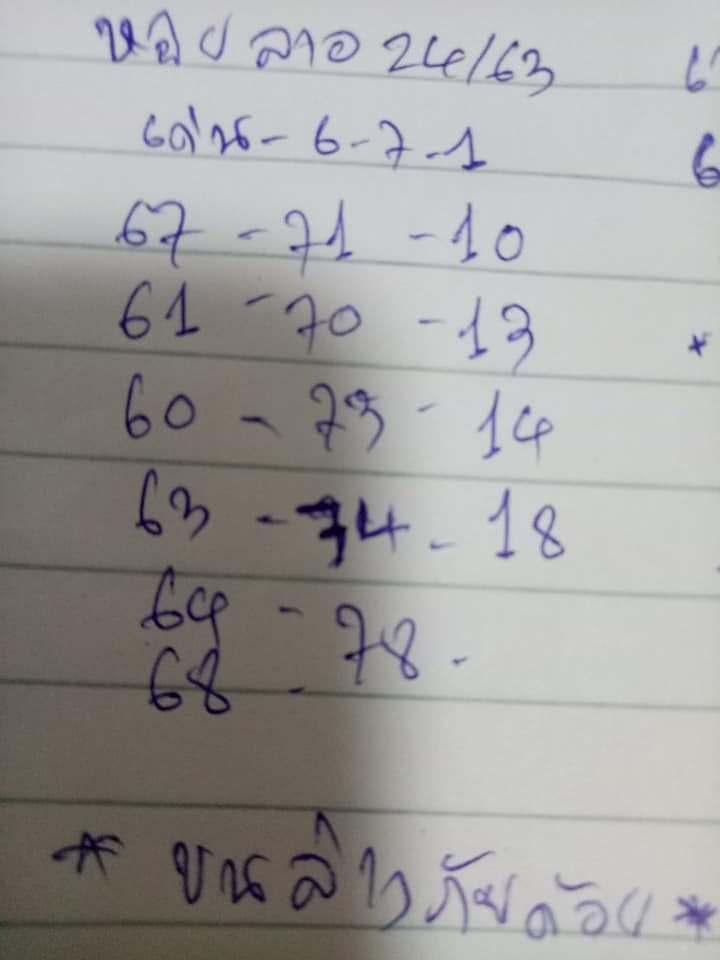 หวย ลาว 24/63
เด่น - 6 - 7 - 1
67 - 71 - 10
61 - 70 - 13
60 - 73 - 14
63 - 74 - 18
64 - 78 -
68 -
* บน ล่าง ภัยด้วย *